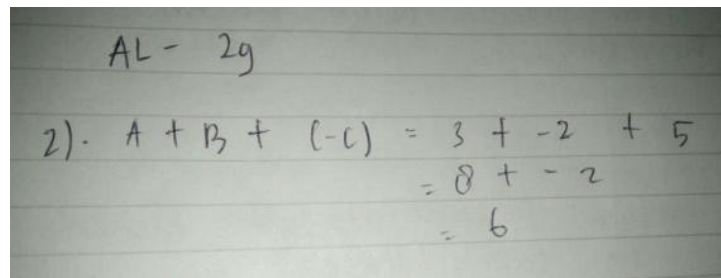 AL - 29
2). A + B + (-C) = 3 + -2 + 5
= 8 + - 2
= 6